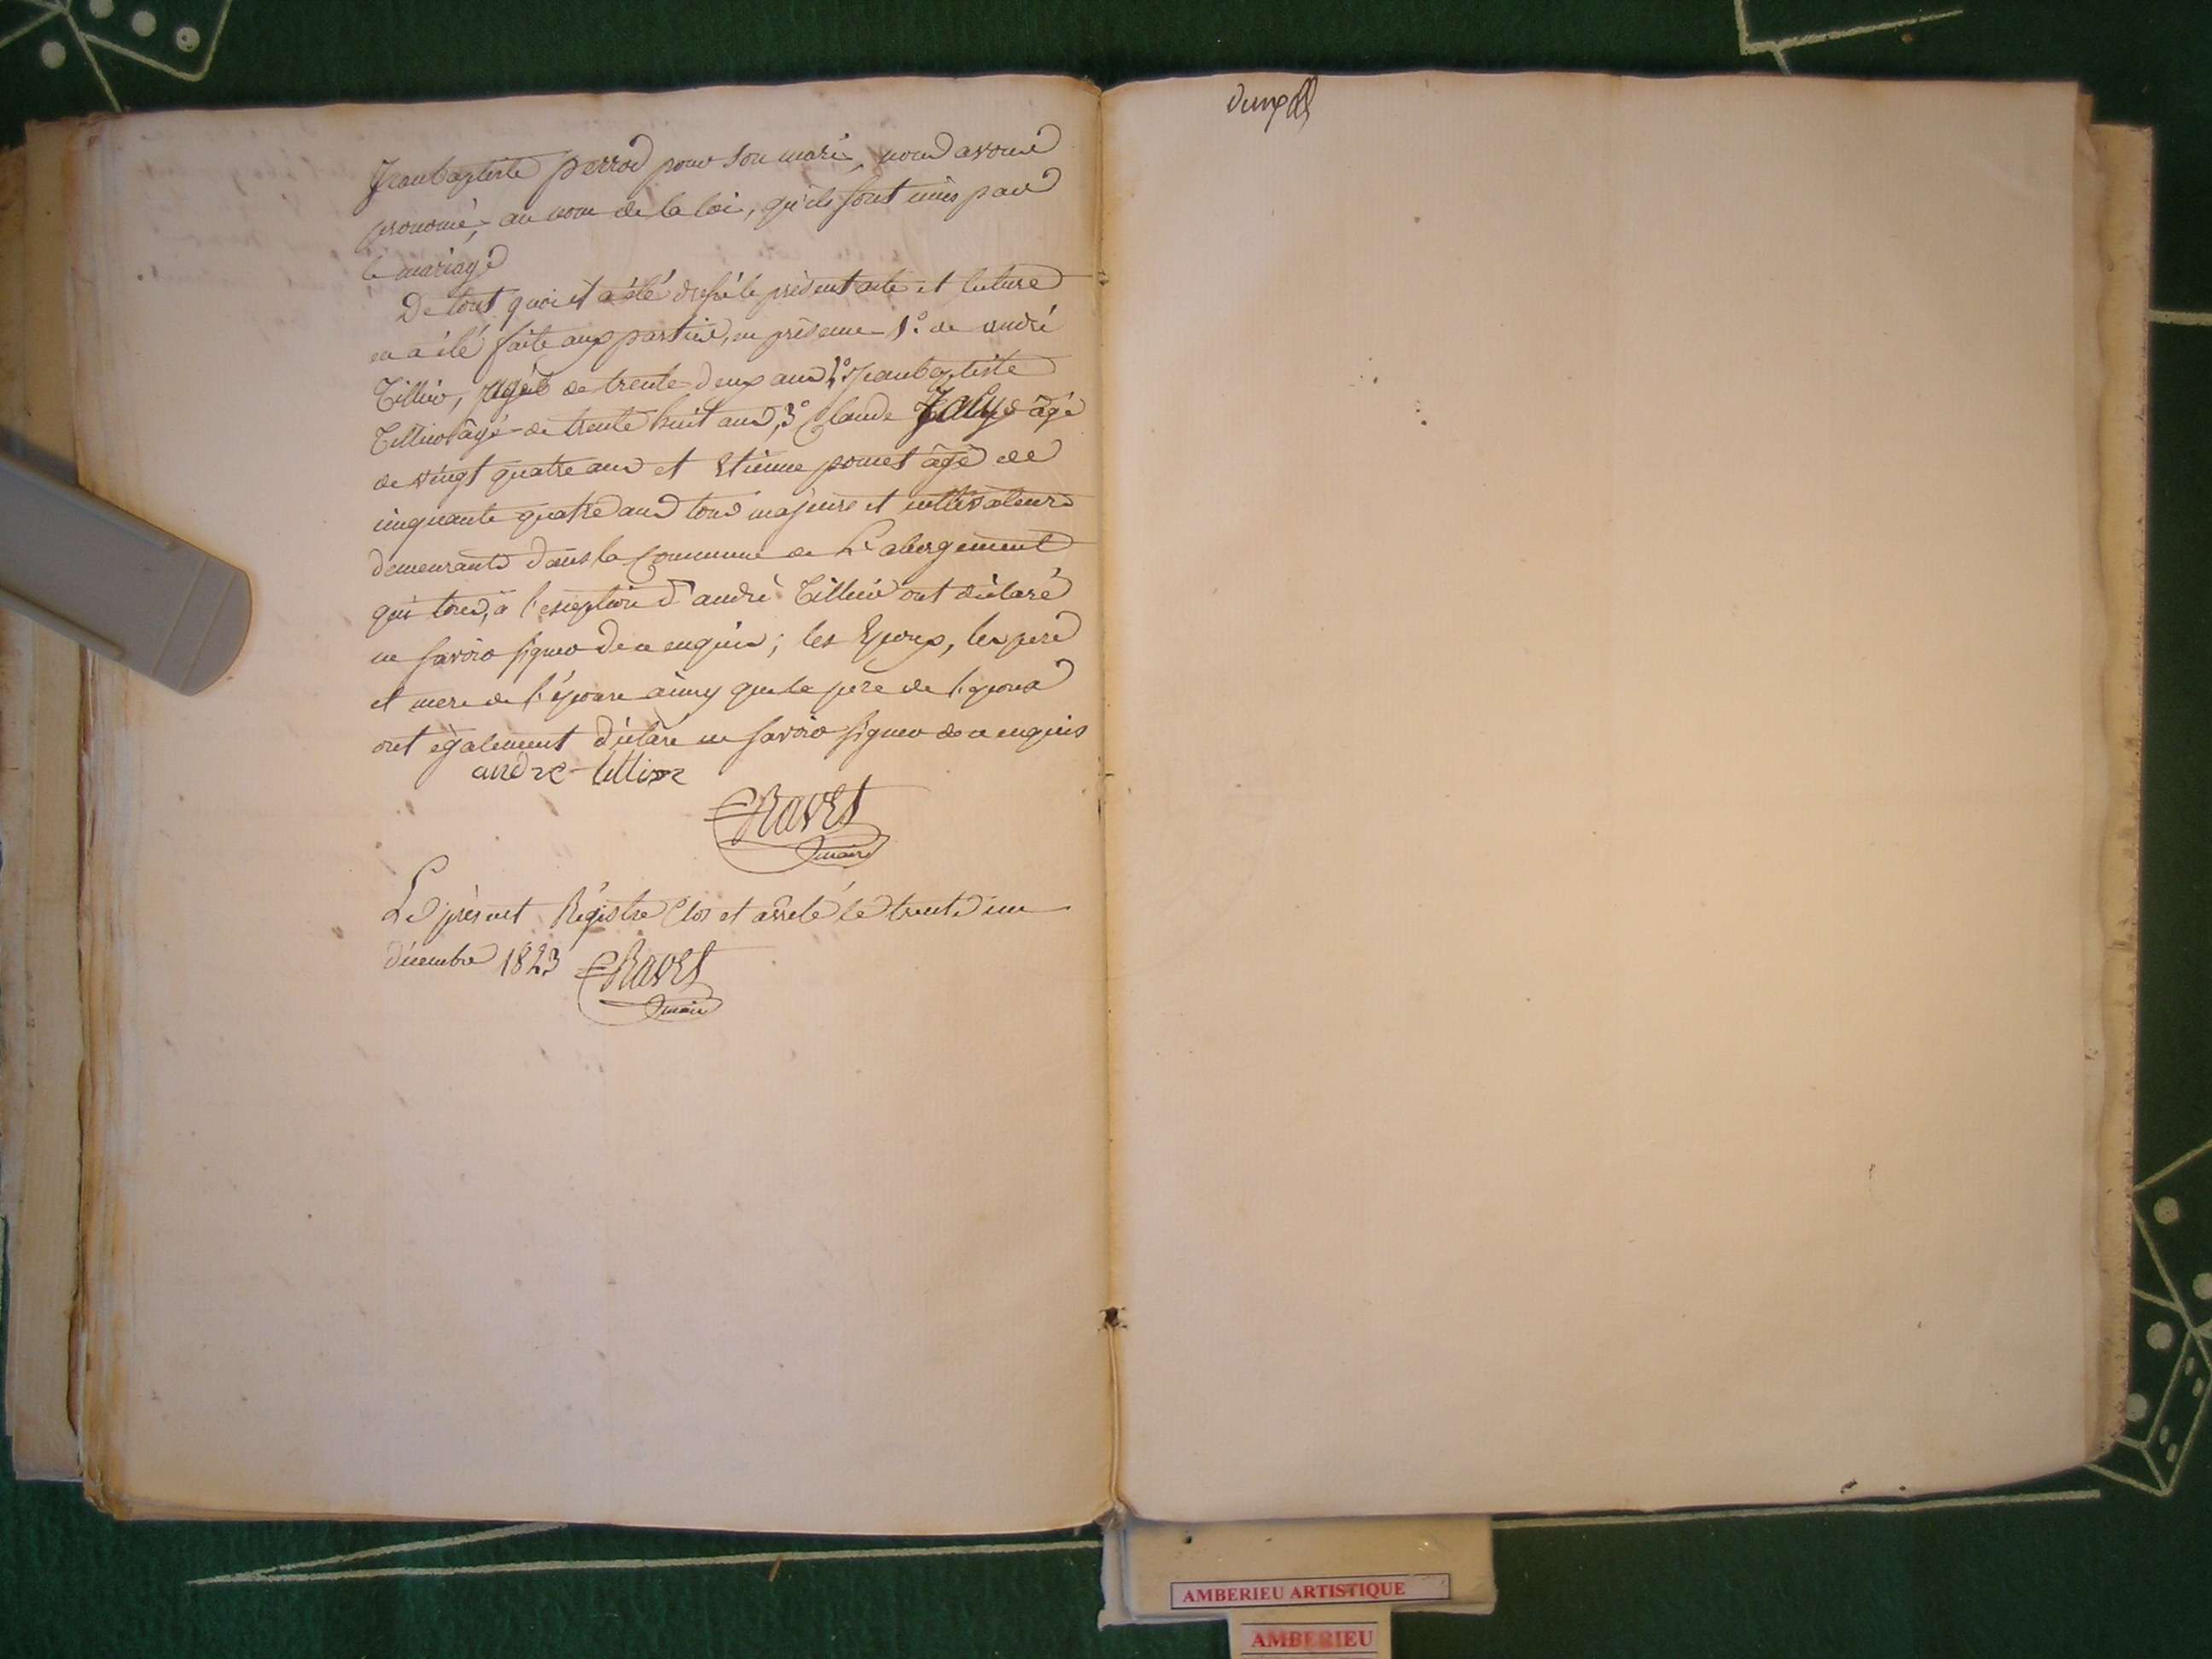 Jeanbaptiste perrod pour son mari, nous avons
prononcé, au nom de la loi, qu'ils sont unis par
le mariage
De tout quoi il a été dressé le présent acte et lecture
en a été faite aux parties, en présence 1º. de andré
Tillier, agé de trente deux ans 2º Jeanbaptiste
Tillier âgé de trente huit ans, 3º Claude âgé
de vingt quatre ans et Etienne pomet âgé de
cinquante quatre ans tous majeurs et cultivateurs
demeurants dans la Commune de L'abergement
qui tous, à l'exception d'andré Tillier ont déclaré
ne savoir signer de ce enquis; les Epoux, les pere
et mere de l'épouse ainsy que le père de l'epoux
ont également déclaré ne savoir signer de ce enquis
andre tillier
Ravet
maire
Le présent Régistre Clos et arreté le trente un
décembre 1823 Ravet
maire
AMBERIEU ARTISTIQUE
AMBERIEU